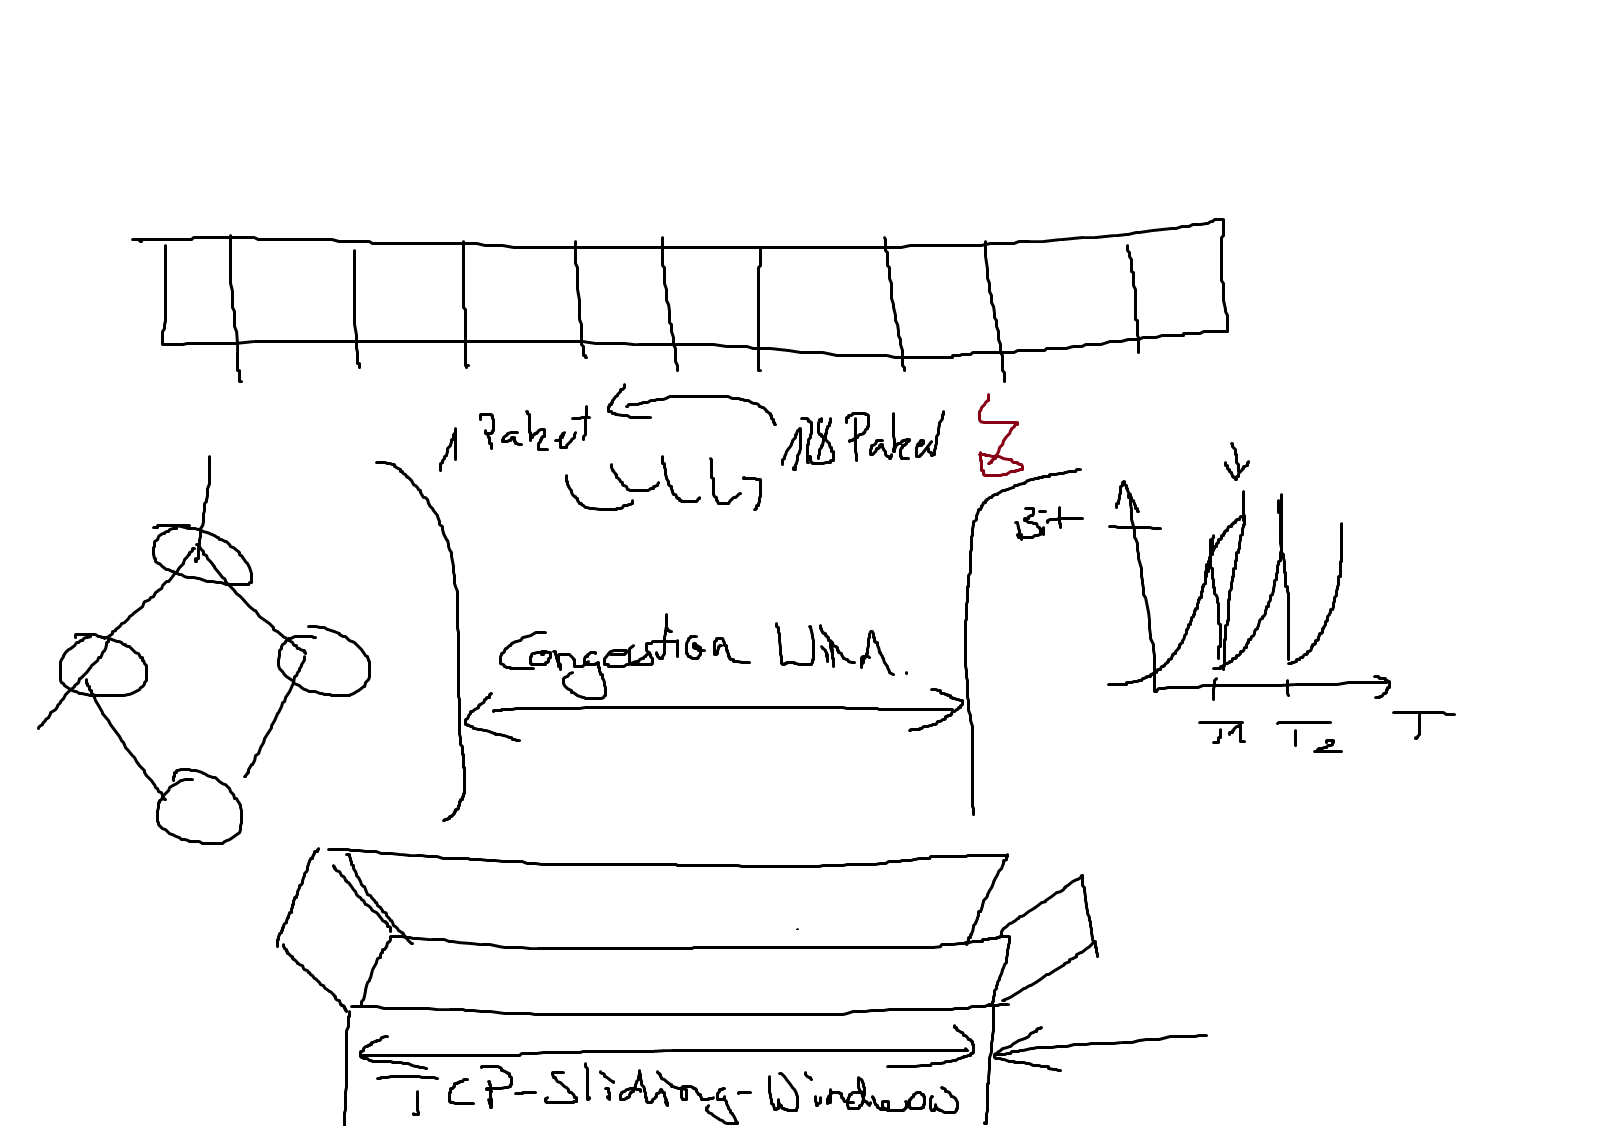 1 Paket 128 Paket
Bit
Congestion Win.
T1 T2 T
TCP-Sliding-Window